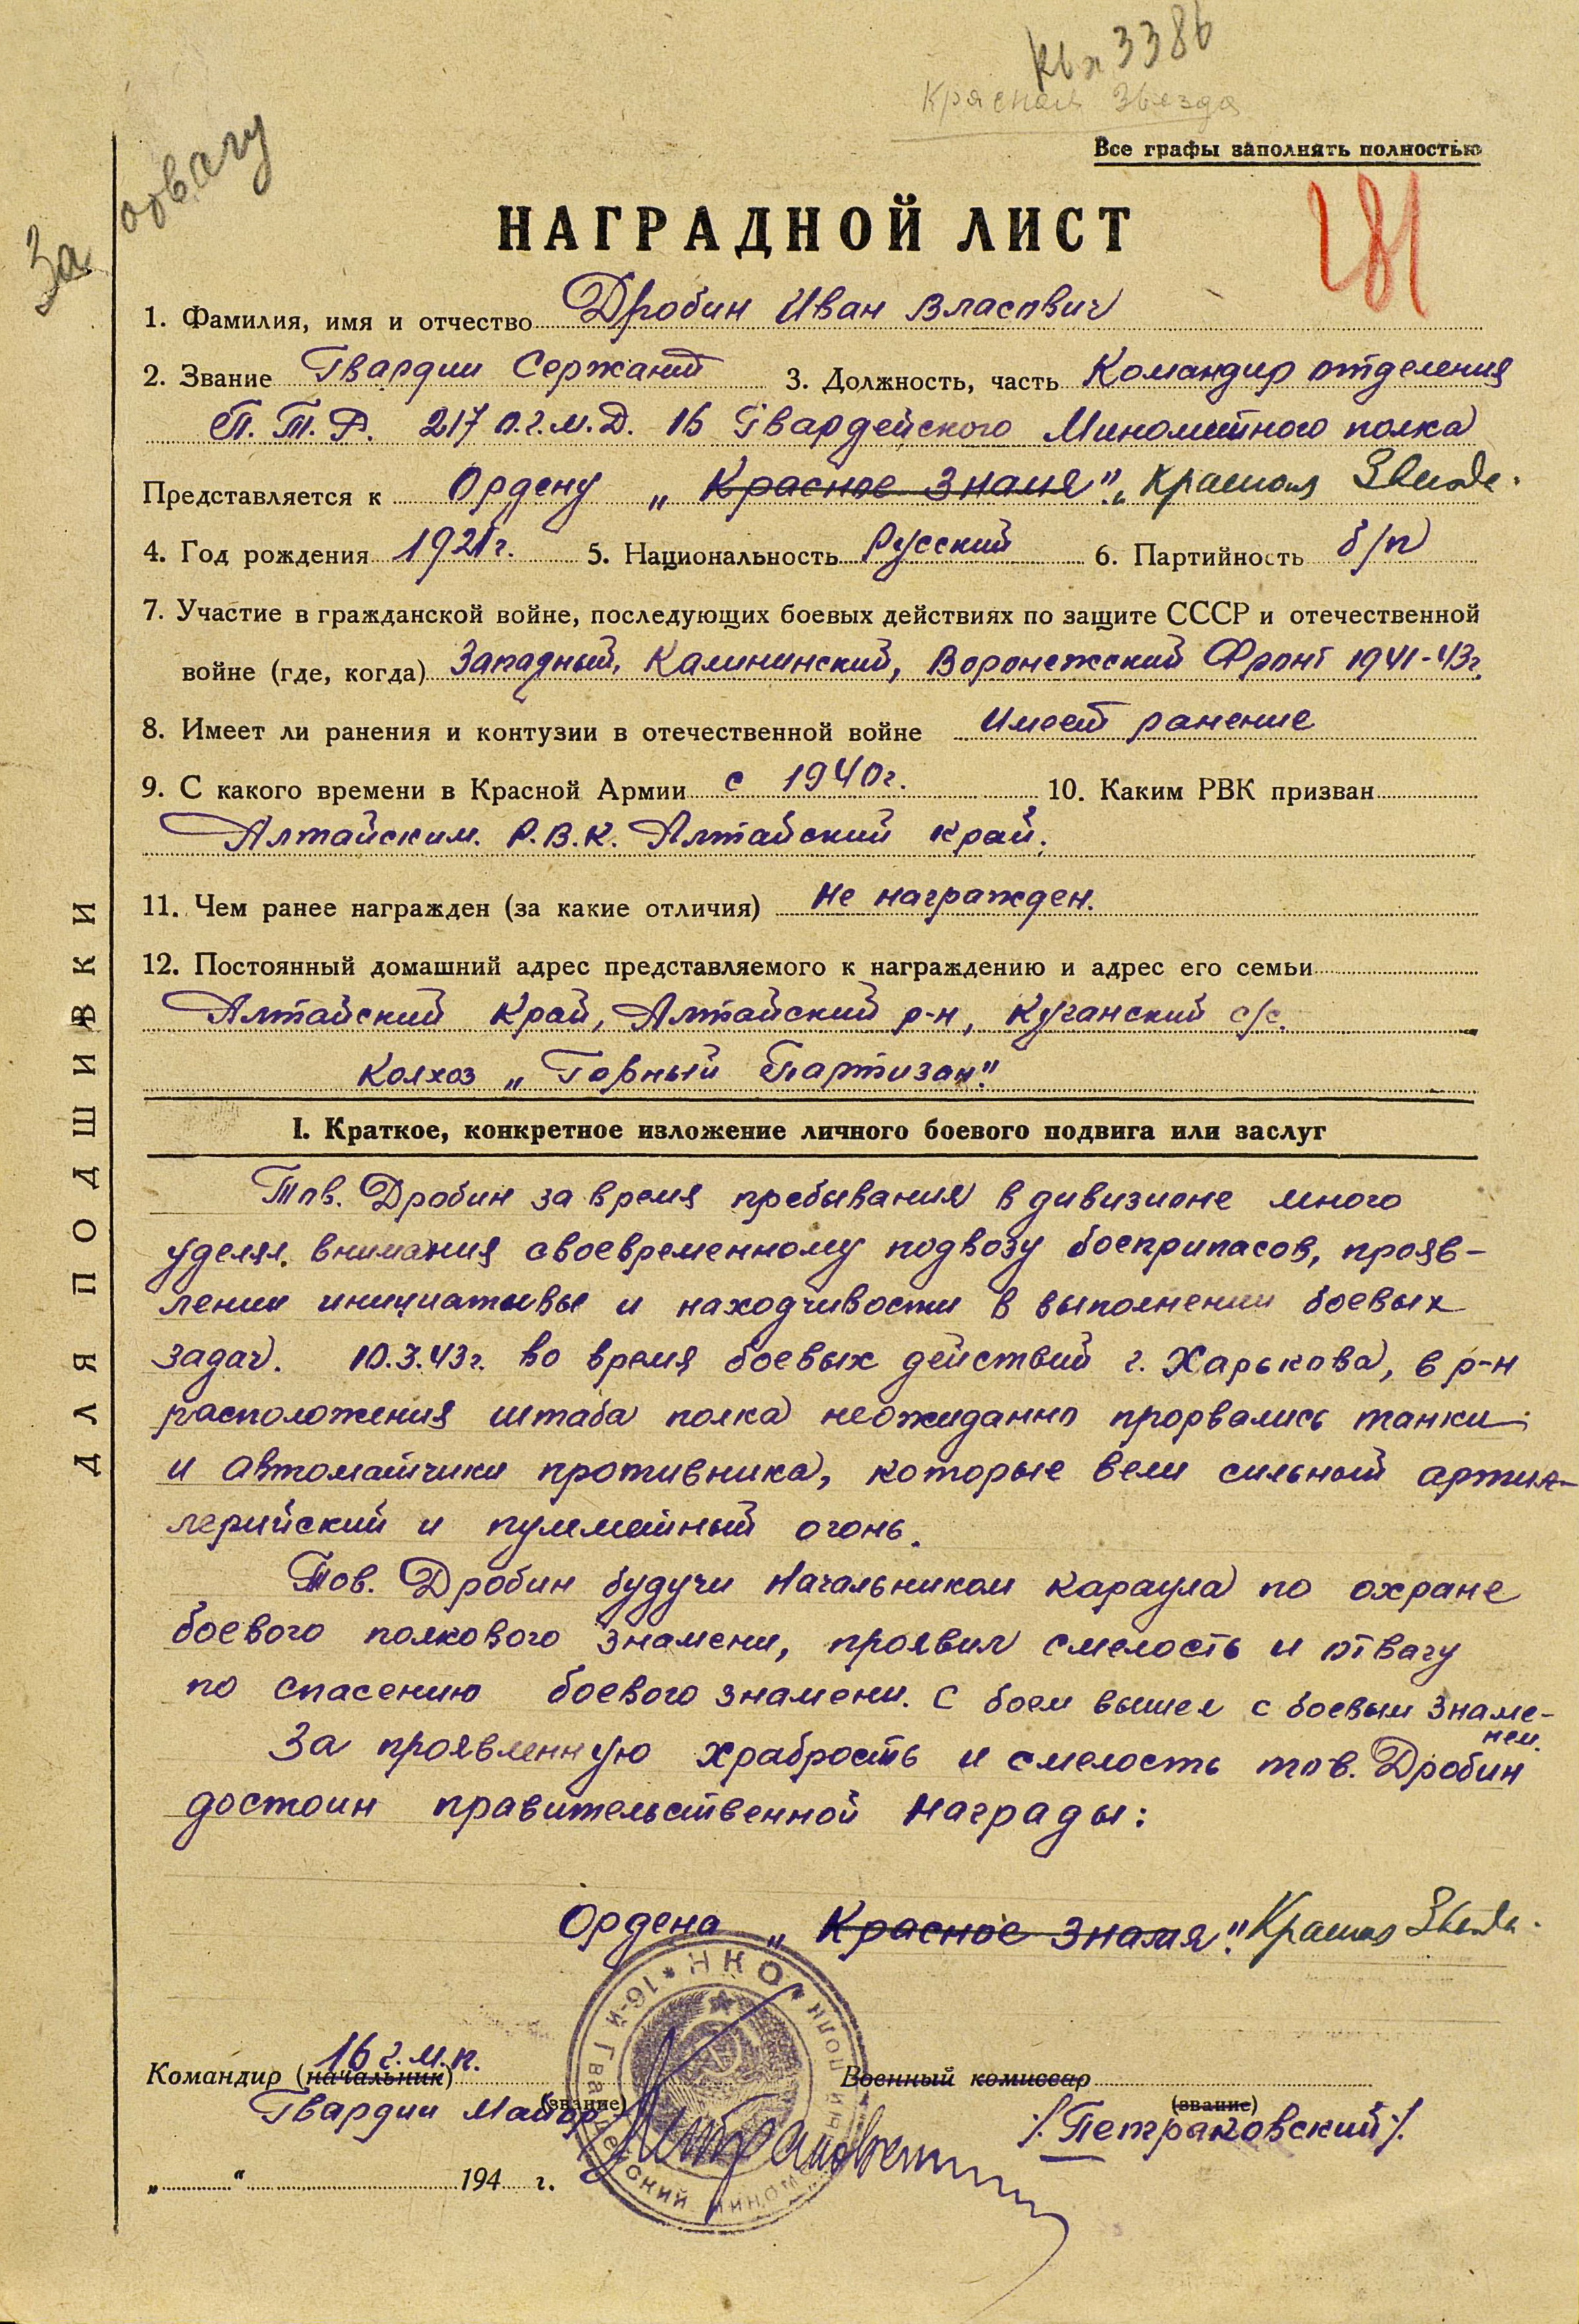 КВ х 3386
Красная Звезда
За отвагу
Все графы заполнять полностью
НАГРАДНОЙ ЛИСТ
1. Фамилия, имя и отчество Дробин Иван Власович
2. Звание Гвардии Сержант 3. Должность, часть Командир отделения
П.Т.Р. 217 о.г.м.д. 16 Гвардейского Минометного полка
Представляется к Ордену „Красное Знамя". „Красная Звезда.
4. Год рождения 1921г. 5. Национальность Русский 6. Партийность б/п
7. Участие в гражданской войне, последующих боевых действиях по защите СССР и отечественной
войне (где, когда) Западный, Калининский, Воронежский Фронт 1941-43г.
8. Имеет ли ранения и контузии в отечественной войне Имеет ранение
9. С какого времени в Красной Армии с 1940г. 10. Каким РВК призван
Алтайским. Р.В.К. Алтайский край.
11. Чем ранее награжден (за какие отличия) Не награжден.
12. Постоянный домашний адрес представляемого к награждению и адрес его семьи
Алтайский Край, Алтайский р-н, Куганский с/с.
Колхоз „Горный Партизан."
I. Краткое, конкретное изложение личного боевого подвига или заслуг
Тов. Дробин за время пребывания в дивизионе много
уделял. внимания своевременному подвозу боеприпасов, прояв-
лении инициативы и находчивости в выполнении боевых
задач. 10.3.43г. во время боевых действий г. Харькова, в р-н
расположения штаба полка неожиданно прорвались танки
и автоматчики противника, которые вели сильный артил-
лерийский и пулеметный огонь.
Тов. Дробин будучи Начальником караула по охране
боевого полкового знамени, проявил смелость и отвагу
по спасению боевого знамени. С боем вышел с боевым знаме-
нем.
За проявленную храбрость и смелость тов. Дробин
достоин правительственной награды:
Ордена „Красное Знамя". Красная Звезда.
16 г.м.п.
Командир (начальник) Военный комиссар
(звание) (звание)
Гвардии Майор /Петраковский/.
„ “ 194 г.
16-й Гвардейский Минометный полк * НКО
ДЛЯ ПОДШИВКИ